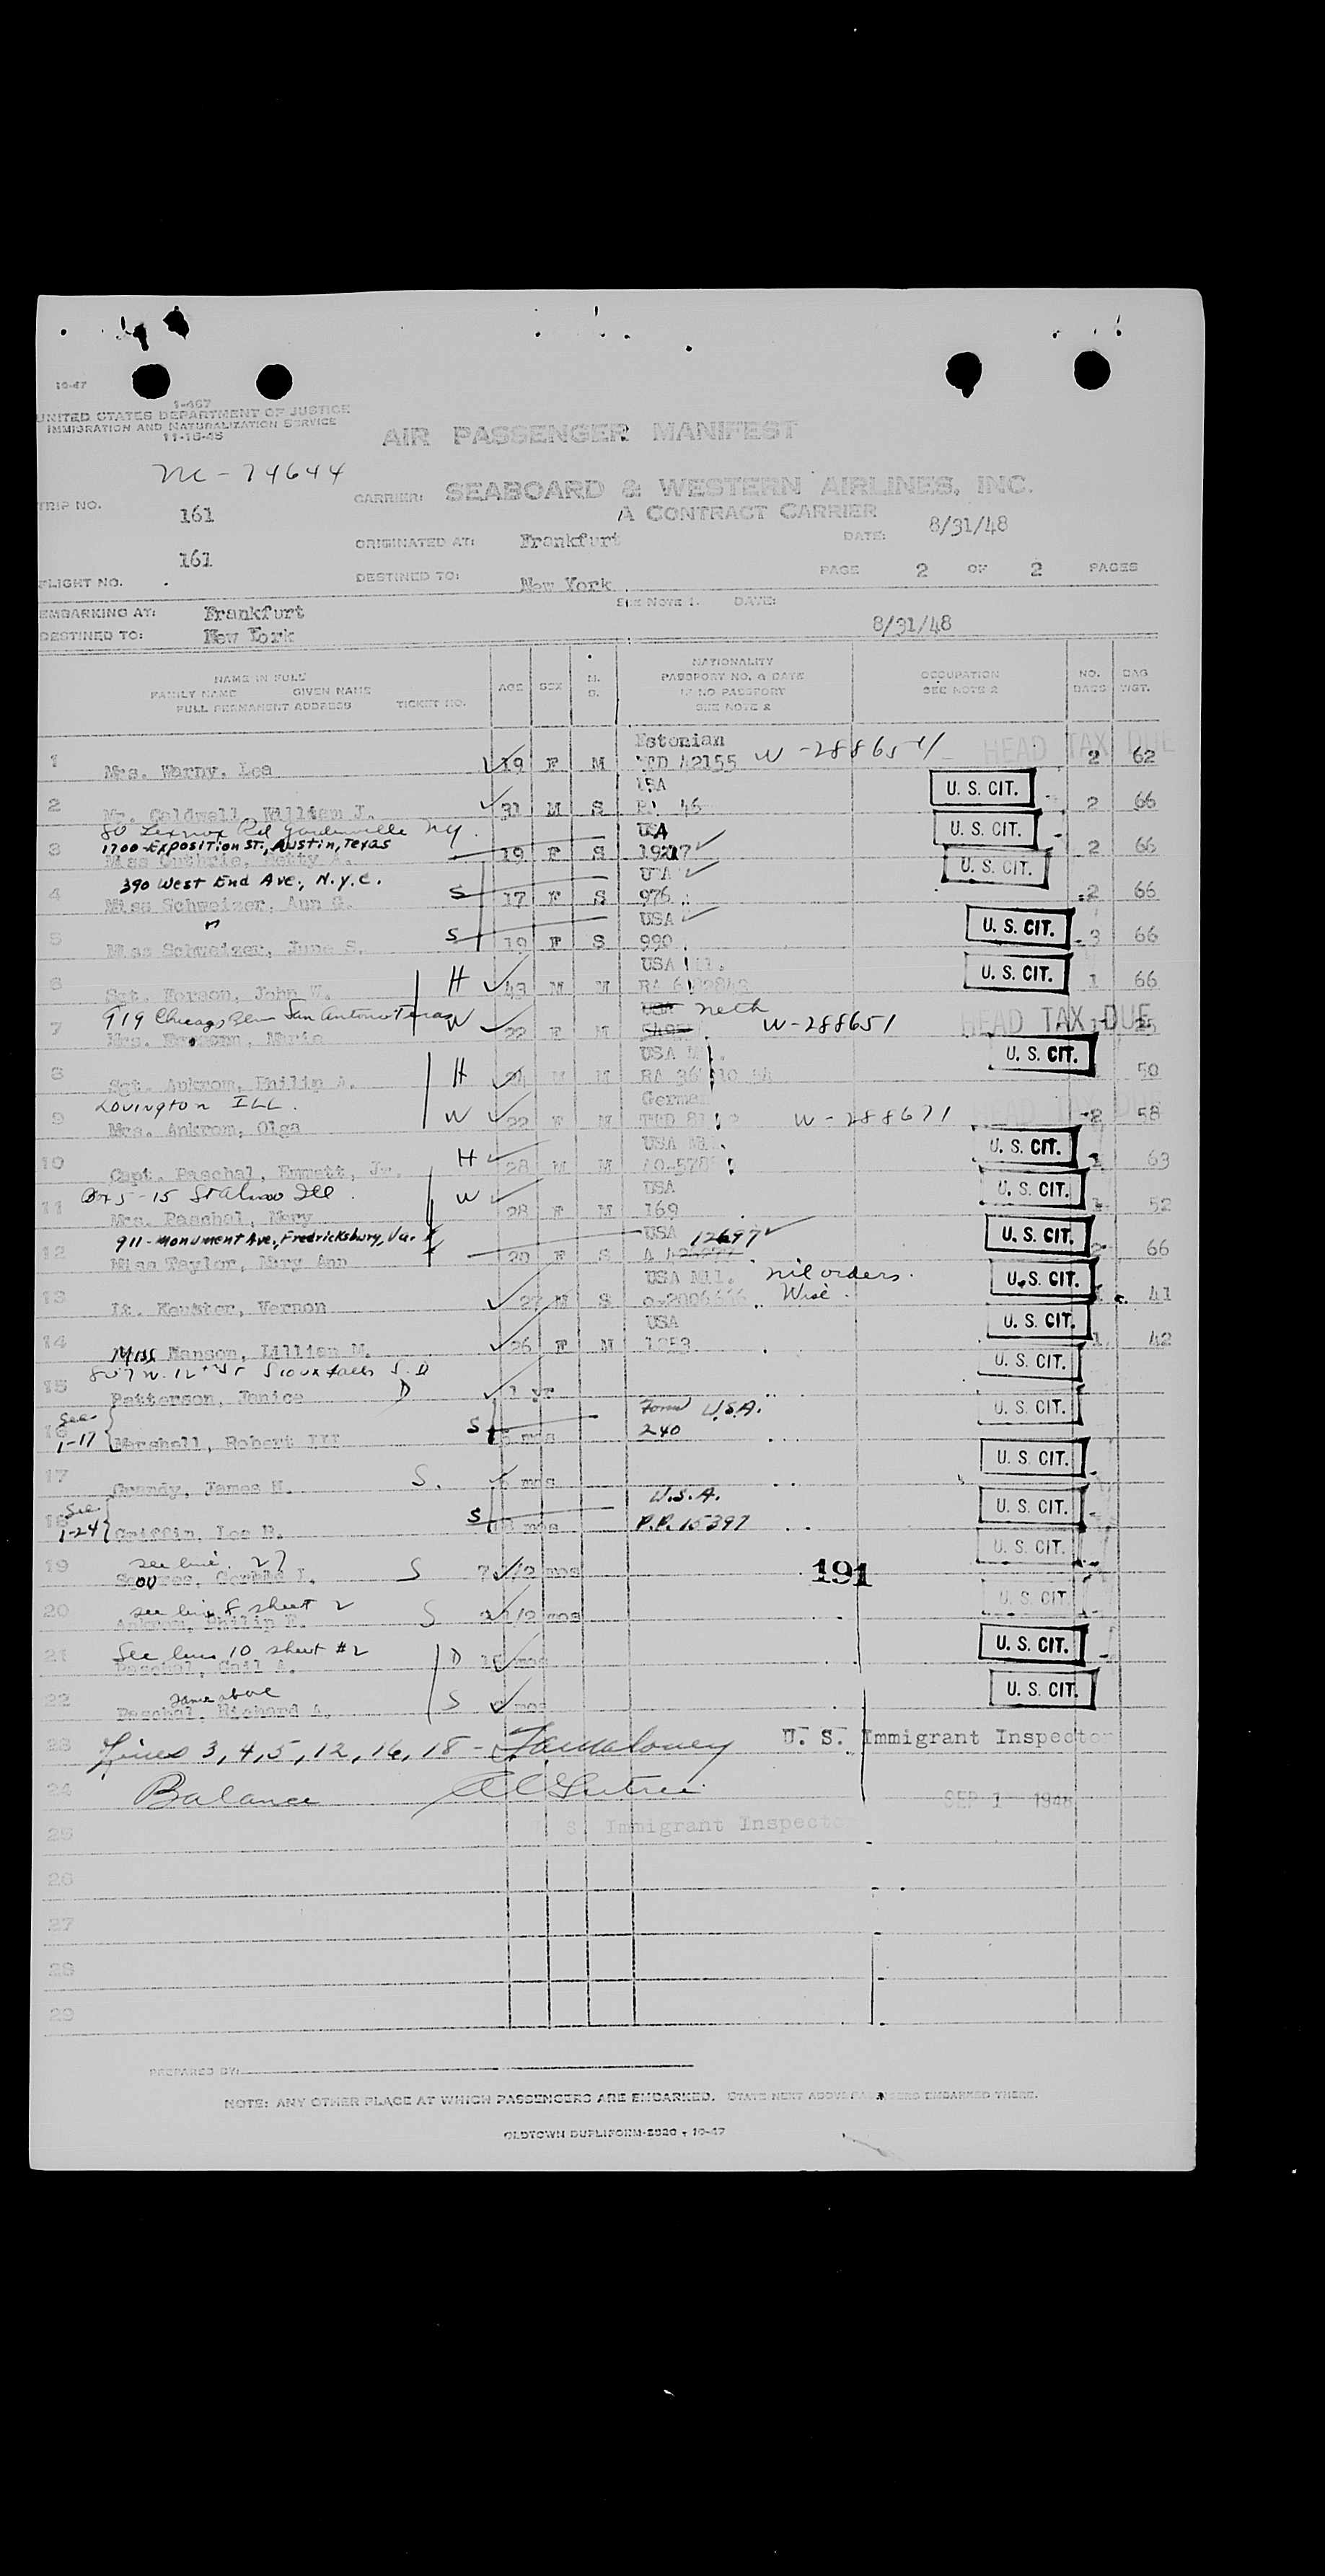 10-47
I-467
UNITED STATES DEPARTMENT OF JUSTICE
IMMIGRATION AND NATURALIZATION SERVICE
11-15-45
AIR PASSENGER MANIFEST
NC-74644
CARRIER: SEABOARD & WESTERN AIRLINES, INC.
A CONTRACT CARRIER
TRIP NO. 161
ORIGINATED AT: Frankfurt DATE: 8/31/48
FLIGHT NO. 161
DESTINED TO: New York PAGE 2 OF 2 PAGES
EMBARKING AT: Frankfurt SEE NOTE 1. DATE: 8/31/48
DESTINED TO: New York
NAME IN FULL
FAMILY NAME GIVEN NAME
FULL PERMANENT ADDRESS TICKET NO.
AGE SEX M. S.
NATIONALITY
PASSPORT NO. & DATE
IF NO PASSPORT
SEE NOTE 2
OCCUPATION
SEE NOTE 2
NO. BAGS
BAG WGT.
Estonian HEAD TAX DUE
1 Mrs. Warny, Lea 19 F M TTD 42155 W-288654 2 62
USA U. S. CIT.
2 Mr. Caldwell, William J. 31 M S 46 2 66
80 Lexnox Rd Gardenville NY.
1700-Exposition St., Austin, Texas USA U. S. CIT.
3 Miss Guthrie, Betty A. 19 F S 2 66
390 West End Ave., N.Y.C. USA U. S. CIT.
4 Miss Schweizer, Ann G. S 17 F S 976 2 66
" USA U. S. CIT.
5 Miss Schweizer, June S. S 19 F S 990 3 66
USA Mil. U. S. CIT.
6 Sgt. John W. H 43 M M RA 1 66
919 Chicago San Antonio Texas USA Neth HEAD TAX DUE
7 Mrs. Maria W 22 F M W-288651 25
USA Mil. U. S. CIT.
8 Sgt. Ankrom, Philip A. H 24 M M RA 50
Lovington ILL. German HEAD TAX DUE
9 Mrs. Ankrom, Olga W 22 F M TTD W-288671 2 58
USA Mil. U. S. CIT.
10 Capt. Paschal, Emmett, Jr. H 28 M M 1 63
Box 5-15 Ill. USA U. S. CIT.
11 Mrs. Paschal, Mary W 28 F M 169 1 52
911-Monument Ave., Fredricksburg, Va. USA 12697 U. S. CIT.
12 Miss Taylor, Mary Ann 20 F S 2 66
USA Mil. mil orders. U. S. CIT.
13 Lt. Vernon 27 M S 1 41
USA U. S. CIT.
14 Miss Manson, Lillian M. 26 F M 1053 1 42
807 W. 12th St Sioux Falls S.D U. S. CIT.
15 Patterson, Janice D 1 yr
See 1-17 Form U.S.A. U. S. CIT.
16 Marshall, Robert III S mos 240
U. S. CIT.
17 Grandy, James H. S. mos
See 1-24 U.S.A. U. S. CIT.
18 Griffin, Lee B. S mos P.P. 15397
see line 27 U. S. CIT.
19 S 7 1/2 mos 191
see line 8 sheet 2 U. S. CIT.
20 Ankrom, Philip S 1/2 mos
See line 10 sheet #2 U. S. CIT.
21 Paschal, Gail A. D mos
same above U. S. CIT.
22 Paschal, Richard A. S mos
23 Lines 3, 4, 5, 12, 16, 18 - U. S. Immigrant Inspector
24 Balance SEP 1 1948
25 U. S. Immigrant Inspector
26
27
28
29
PREPARED BY:
NOTE: ANY OTHER PLACE AT WHICH PASSENGERS ARE EMBARKED. STATE NEXT ABOVE PASSENGERS EMBARKED THERE.
OLDTOWN DUPLIFORM-2920 - 10-47